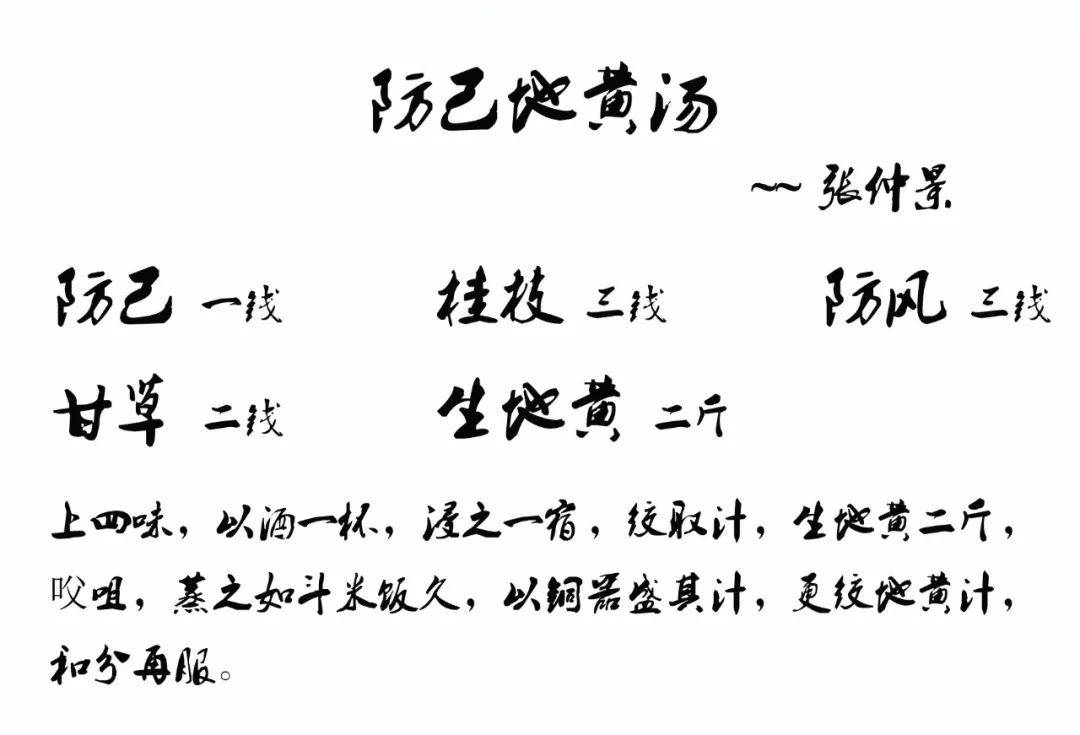 防己地黄汤
~~ 张仲景
防己 一钱 桂枝 三钱 防风 三钱
甘草 二钱 生地黄 二斤
上四味，以酒一杯，浸之一宿，绞取汁，生地黄二斤，
㕮咀，蒸之如斗米饭久，以铜器盛其汁，更绞地黄汁，
和分再服。